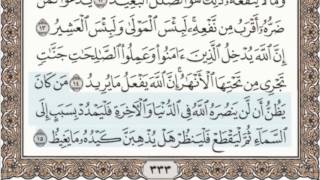 وَمَا لَا يَنفَعُهُۥ ذَٰلِكَ هُوَ ٱلضَّلَٰلُ ٱلْبَعِيدُ ١٢ يَدْعُوا۟ لَمَن
ضَرُّهُۥٓ أَقْرَبُ مِن نَّفْعِهِۦ لَبِئْسَ ٱلْمَوْلَىٰ وَلَبِئْسَ ٱلْعَشِيرُ ١٣
إِنَّ ٱللَّهَ يُدْخِلُ ٱلَّذِينَ ءَامَنُوا۟ وَعَمِلُوا۟ ٱلصَّٰلِحَٰتِ جَنَّٰتٍ
تَجْرِى مِن تَحْتِهَا ٱلْأَنْهَٰرُ إِنَّ ٱللَّهَ يَفْعَلُ مَا يُرِيدُ ١٤ مَن كَانَ
يَظُنُّ أَن لَّن يَنصُرَهُ ٱللَّهُ فِى ٱلدُّنْيَا وَٱلْءَاخِرَةِ فَلْيَمْدُدْ بِسَبَبٍ إِلَى
ٱلسَّمَآءِ ثُمَّ لْيَقْطَعْ فَلْيَنظُرْ هَلْ يُذْهِبَنَّ كَيْدُهُۥ مَا يَغِيظُ ١٥
٣٣٣